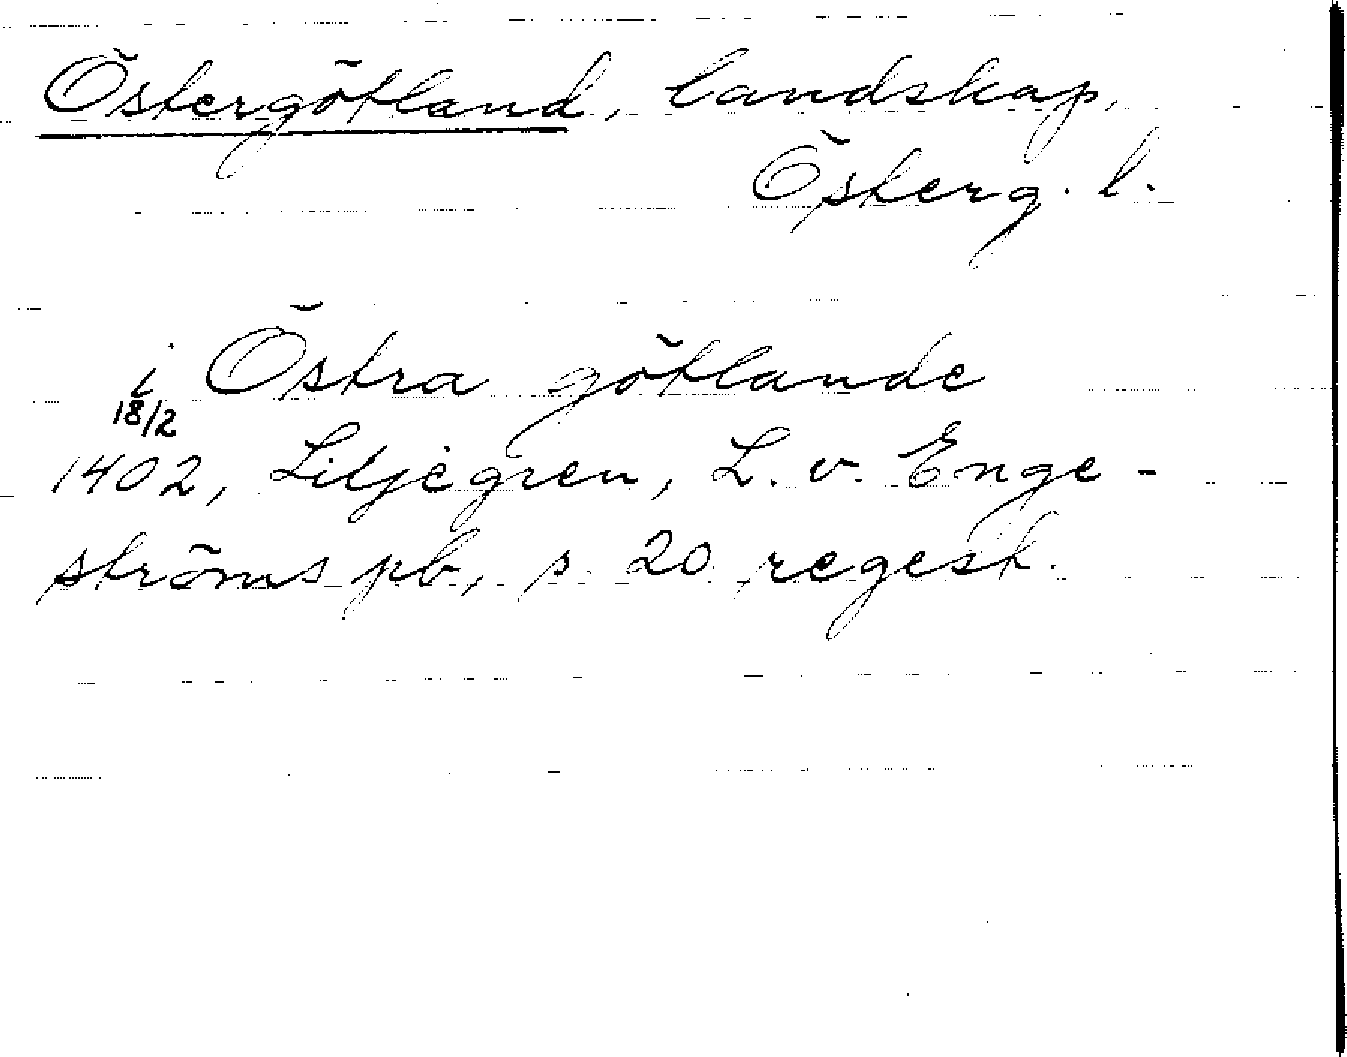 Östergötland, landskap,
Österg. l.
i Östra götlande
18/2
1402, Liljegren, L. v. Enge-
ströms pb, s. 20 regest.